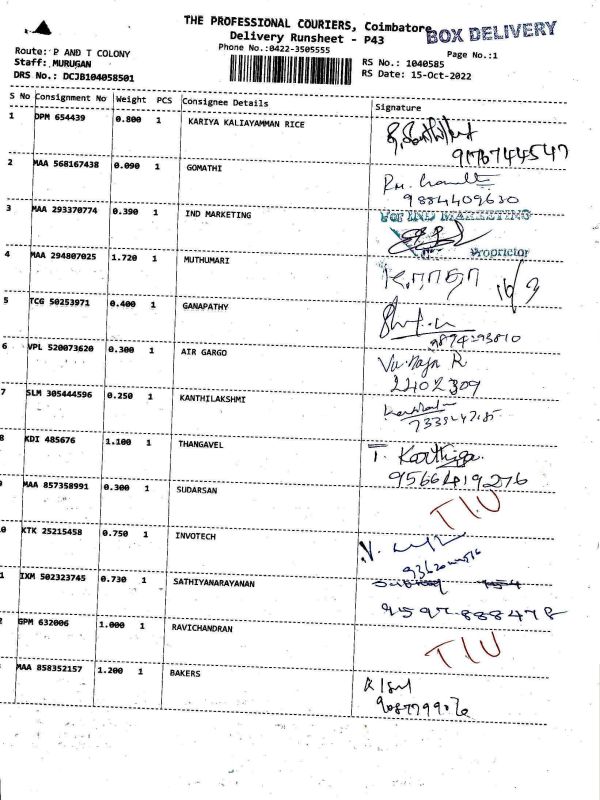 THE PROFESSIONAL COURIERS, Coimbatore
BOX DELIVERY
Delivery Runsheet - P43
Phone No.:0422-3505555
Page No.:1
Route: P AND T COLONY
Staff: MURUGAN
DRS No.: DCJB104058501
RS No.: 1040585
RS Date: 15-Oct-2022
S No Consignment No Weight PCS Consignee Details Signature
1 DPM 654439 0.800 1 KARIYA KALIAYAMMAN RICE
9176744547
2 MAA 568167438 0.090 1 GOMATHI
9884409630
3 MAA 293370774 0.390 1 IND MARKETING
For IND MARKETING
Proprietor
4 MAA 294807025 1.720 1 MUTHUMARI
5 TCG 50253971 0.400 1 GANAPATHY
9874293810
6 VPL 520073620 0.300 1 AIR GARGO
2402309
7 SLM 305444596 0.250 1 KANTHILAKSHMI
8 KDI 485676 1.100 1 THANGAVEL
T. Karthiga
9566419276
MAA 857358991 0.300 1 SUDARSAN
T/U
0 KTK 25215458 0.750 1 INVOTECH
1 IXM 502323745 0.730 1 SATHIYANARAYANAN
2 GPM 632006 1.000 1 RAVICHANDRAN
T/U
MAA 858352157 1.200 1 BAKERS